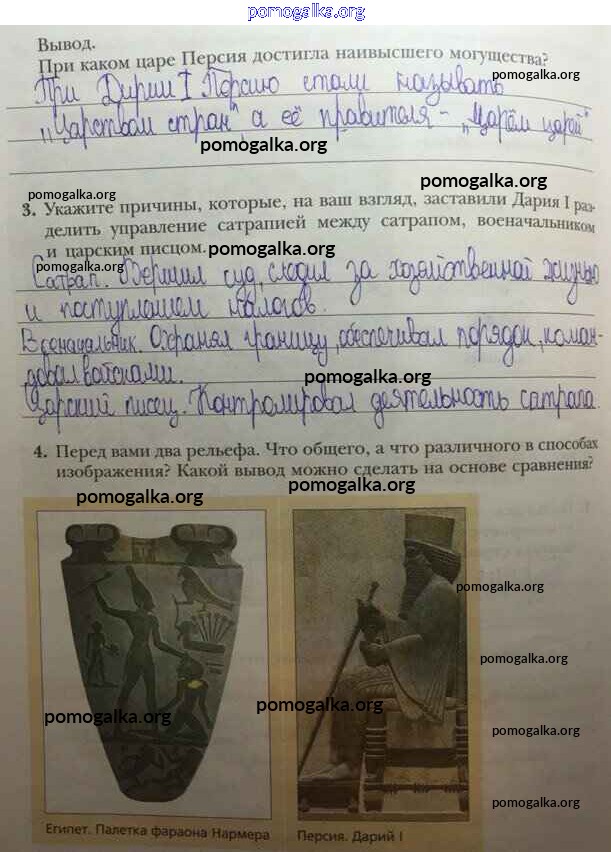 pomogalka.org
Вывод.
При каком царе Персия достигла наивысшего могущества?
pomogalka.org
При Дарии I Персию стали называть
„Царством стран" а её правителя – „Царём царей"
pomogalka.org
pomogalka.org
pomogalka.org
3. Укажите причины, которые, на ваш взгляд, заставили Дария I раз-
делить управление сатрапией между сатрапом, военачальником
и царским писцом. pomogalka.org
pomogalka.org
Сатрап. Вершил суд, следил за хозяйственной жизнью
и поступлением налогов.
Военачальник. Охранял границу, обеспечивал порядок, коман-
довал войсками.
pomogalka.org
Царский писец. Контролировал деятельность сатрапа.
4. Перед вами два рельефа. Что общего, а что различного в способах
изображения? Какой вывод можно сделать на основе сравнения?
pomogalka.org
pomogalka.org
pomogalka.org
pomogalka.org
pomogalka.org
pomogalka.org
pomogalka.org
pomogalka.org
Египет. Палетка фараона Нармера
Персия. Дарий I